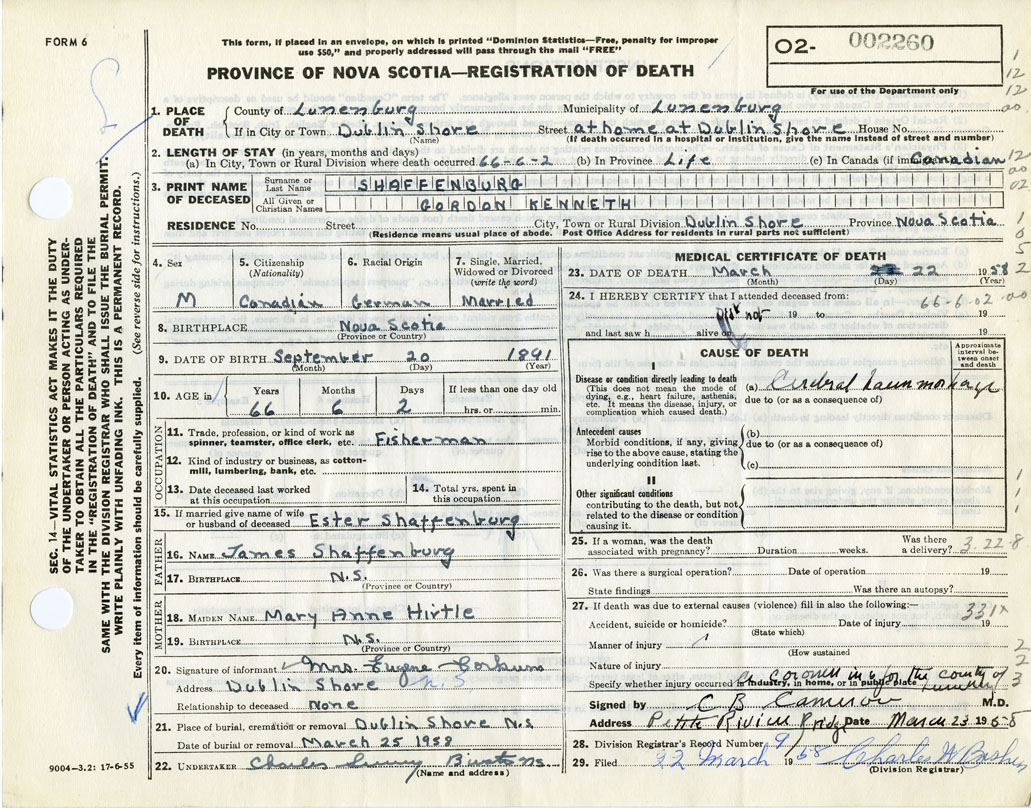 FORM 6
This form, if placed in an envelope, on which is printed "Dominion Statistics—Free, penalty for improper
use $50," and properly addressed will pass through the mail "FREE"
O2- 002260
For use of the Department only
PROVINCE OF NOVA SCOTIA—REGISTRATION OF DEATH
1. PLACE OF DEATH County of Lunenburg Municipality of Lunenburg
If in City or Town Dublin Shore Street at home at Dublin Shore House No.
(Name) (If death occurred in a hospital or institution, give the name instead of street and number)
2. LENGTH OF STAY (in years, months and days)
(a) In City, Town or Rural Division where death occurred 66-6-2 (b) In Province Life (c) In Canada (if imm Canadian
3. PRINT NAME OF DECEASED Surname or Last Name SHAFFENBURG
All Given or Christian Names GORDON KENNETH
RESIDENCE No. Street City, Town or Rural Division Dublin Shore Province Nova Scotia
(Residence means usual place of abode. Post Office Address for residents in rural parts not sufficient)
SEC. 14—VITAL STATISTICS ACT MAKES IT THE DUTY
OF THE UNDERTAKER OR PERSON ACTING AS UNDER-
TAKER TO OBTAIN ALL THE PARTICULARS REQUIRED
IN THE "REGISTRATION OF DEATH" AND TO FILE THE
SAME WITH THE DIVISION REGISTRAR WHO SHALL ISSUE THE BURIAL PERMIT.
WRITE PLAINLY WITH UNFADING INK. THIS IS A PERMANENT RECORD.
Every item of information should be carefully supplied. (See reverse side for instructions.)
4. Sex M
5. Citizenship (Nationality) Canadian
6. Racial Origin German
7. Single, Married, Widowed or Divorced (write the word) Married
8. BIRTHPLACE Nova Scotia
(Province or Country)
9. DATE OF BIRTH September 20 1891
(Month) (Day) (Year)
10. AGE in Years 66 Months 6 Days 2 If less than one day old hrs. or min.
OCCUPATION
11. Trade, profession, or kind of work as spinner, teamster, office clerk, etc. Fisherman
12. Kind of industry or business, as cotton-mill, lumbering, bank, etc.
13. Date deceased last worked at this occupation
14. Total yrs. spent in this occupation
15. If married give name of wife or husband of deceased Ester Shaffenburg
FATHER
16. NAME James Shaffenburg
17. BIRTHPLACE N.S.
(Province or Country)
MOTHER
18. MAIDEN NAME Mary Anne Hirtle
19. BIRTHPLACE N.S.
(Province or Country)
20. Signature of informant Mrs. Eugene Corkum
Address Dublin Shore N.S
Relationship to deceased None
21. Place of burial, cremation or removal Dublin Shore N.S
Date of burial or removal March 25 1958
22. UNDERTAKER Charles
(Name and address)
9004-3.2: 17-6-55
MEDICAL CERTIFICATE OF DEATH
23. DATE OF DEATH March 22 1958
(Month) (Day) (Year)
24. I HEREBY CERTIFY that I attended deceased from:
66-6-02-00
Did not 19 to 19
and last saw h alive on 19
CAUSE OF DEATH
Approximate interval between onset and death
I
Disease or condition directly leading to death
(This does not mean the mode of dying, e.g., heart failure, asthenia, etc. It means the disease, injury, or complication which caused death.)
(a) Cerebral haemmorhage
due to (or as a consequence of)
Antecedent causes
Morbid conditions, if any, giving rise to the above cause, stating the underlying condition last.
(b)
due to (or as a consequence of)
(c)
II
Other significant conditions
contributing to the death, but not related to the disease or condition causing it.
25. If a woman, was the death associated with pregnancy? Duration weeks. Was there a delivery? 3.22-8
26. Was there a surgical operation? Date of operation 19
State findings Was there an autopsy?
27. If death was due to external causes (violence) fill in also the following:— 331x
Accident, suicide or homicide? Date of injury 19
(State which)
Manner of injury
(How sustained
Nature of injury
Specify whether injury occurred in industry, in home, or in public place
for the county of
Signed by C B Cameron M.D.
Address Petite Riviere Bridge Date March 23 1958
28. Division Registrar's Record Number 9
29. Filed 22 March 1958 Charles
(Division Registrar)